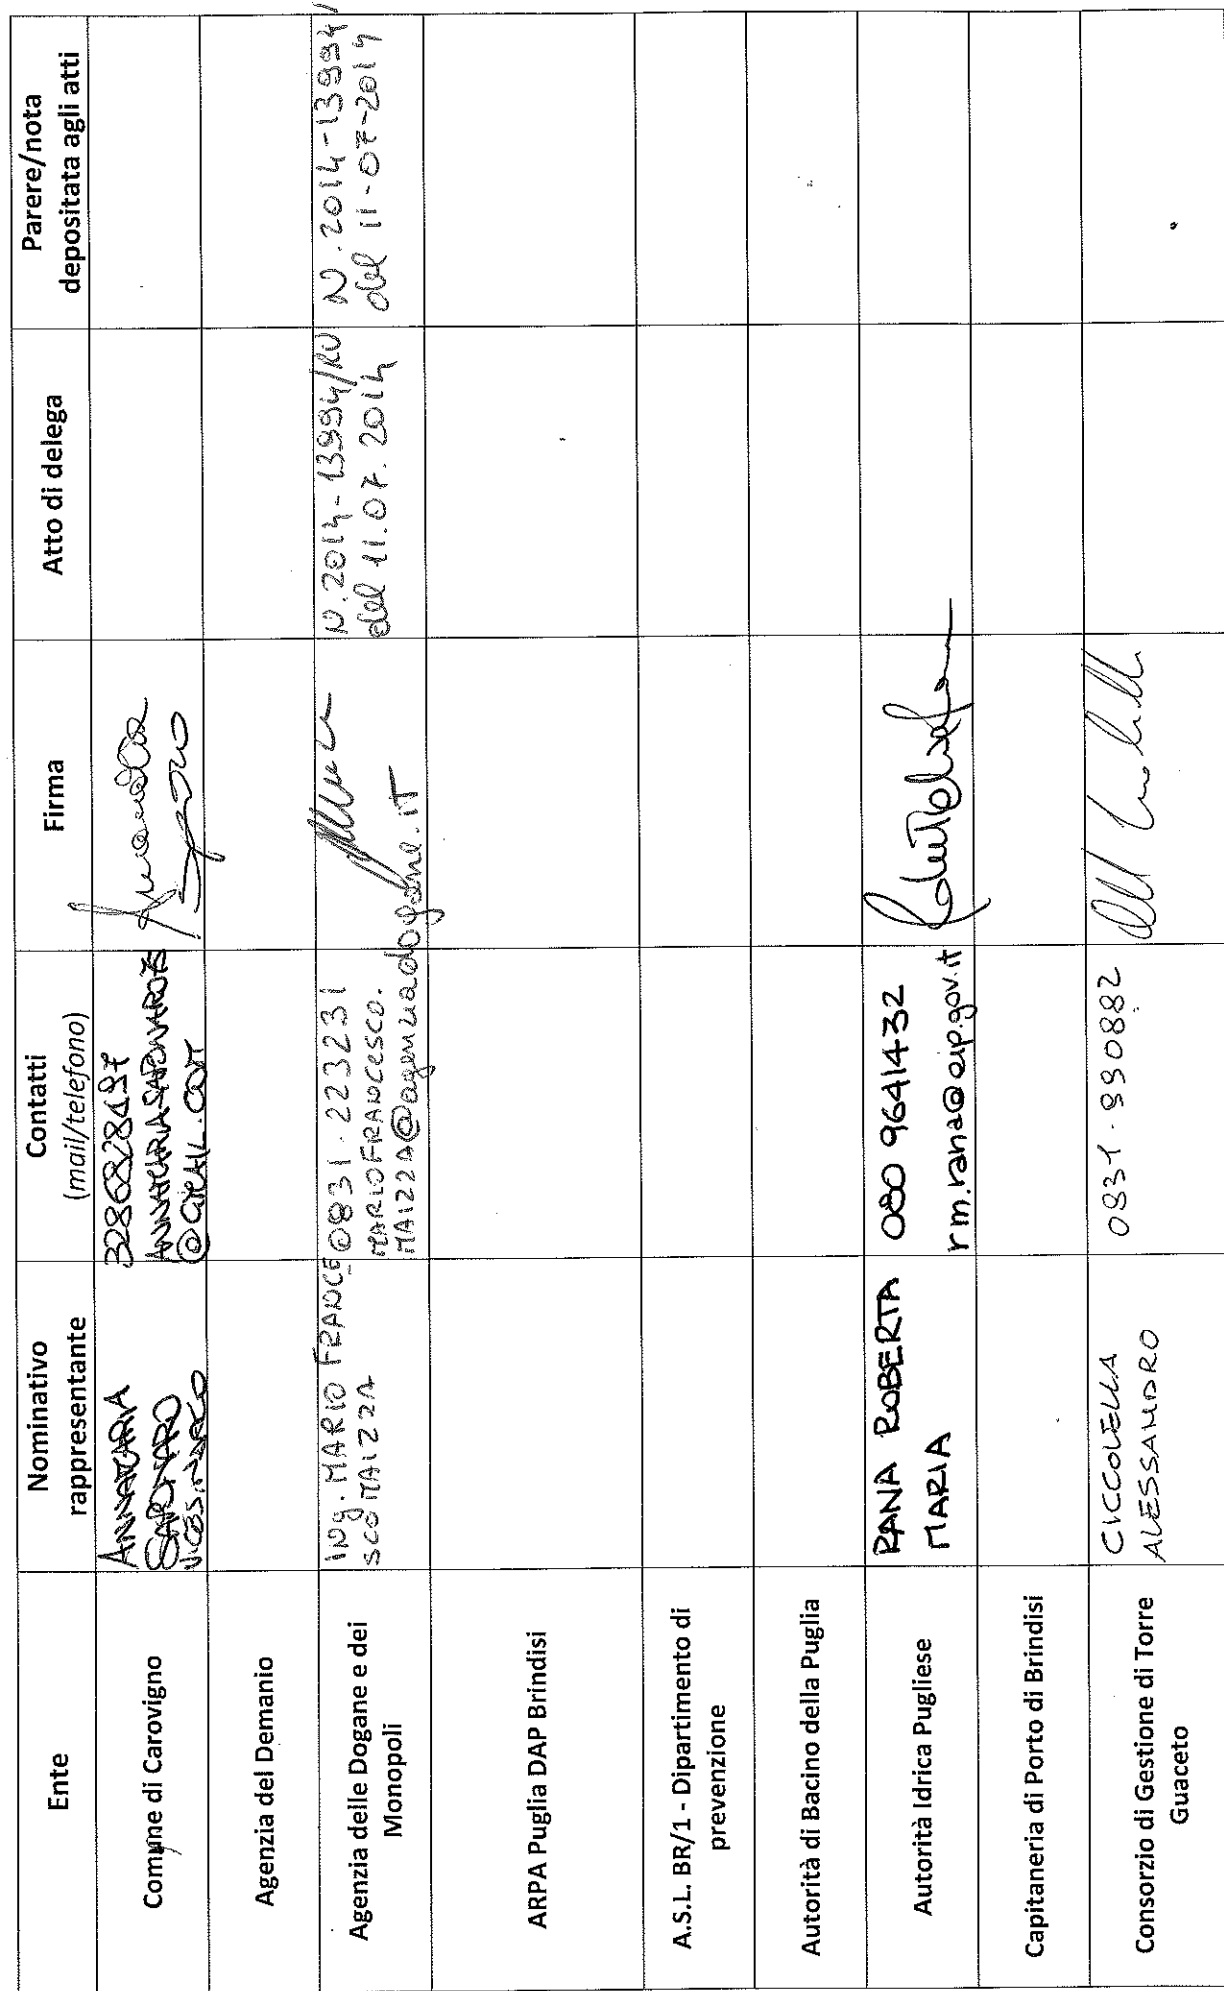 Ente
Nominativo
rappresentante
Contatti
(mail/telefono)
Firma
Atto di delega
Parere/nota
depositata agli atti
Comune di Carovigno
ANNAMARIA
SAPONARO
VICESINDACO
3286828497
ANNAMARIASAPONARO75
@GMAIL.COM
Agenzia del Demanio
Agenzia delle Dogane e dei
Monopoli
ING. MARIO FRANCE
SCO MAIZZA
0831.223231
MARIOFRANCESCO.
MAIZZA@agenziadogane.IT
N.2014-13994/RU
del 11.07.2014
N.2014-13994/
del 11-07-2014
ARPA Puglia DAP Brindisi
A.S.L. BR/1 - Dipartimento di
prevenzione
Autorità di Bacino della Puglia
Autorità Idrica Pugliese
RANA ROBERTA
MARIA
080 9641432
rm.rana@aip.gov.it
Capitaneria di Porto di Brindisi
Consorzio di Gestione di Torre
Guaceto
CICCOLELLA
ALESSANDRO
0831.990882